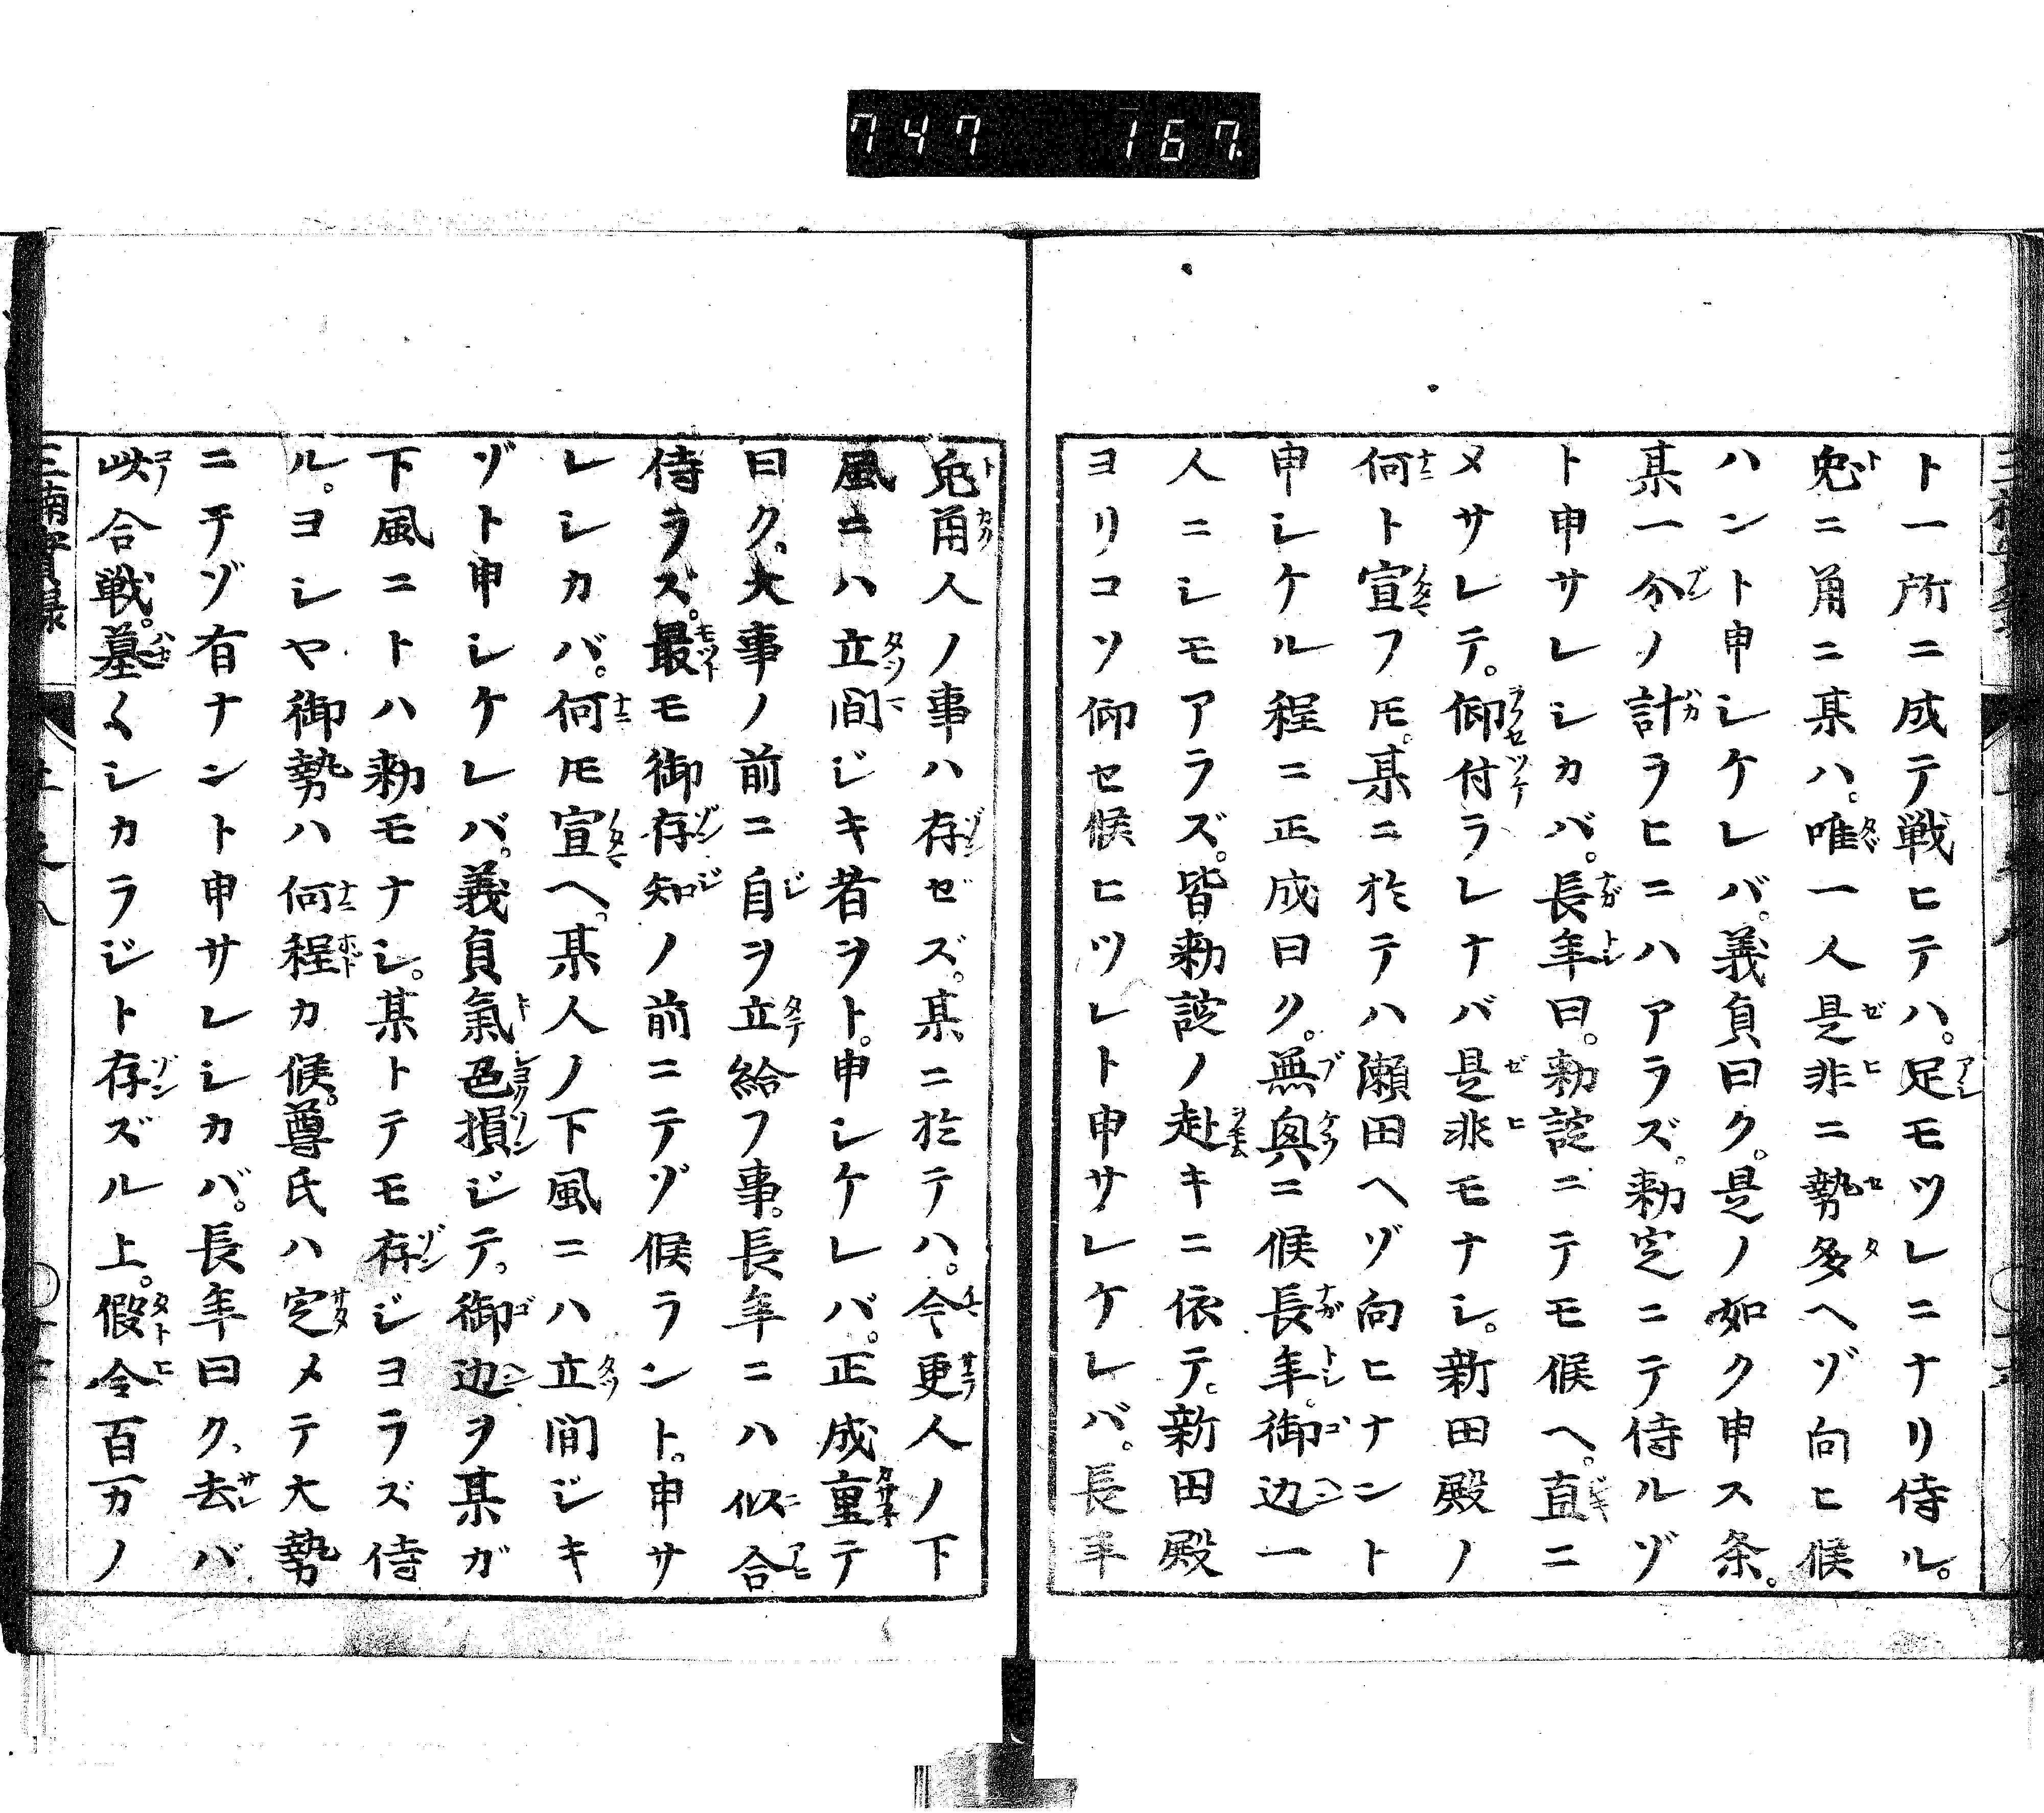 747 167
ト一所ニ成テ戦ヒテハ。足モツレニナリ侍ル。
兔ニ角ニ某ハ。唯一人是非ニ勢多ヘゾ向ヒ候
ハント申シケレバ。義貞曰ク。是ノ如ク申ス条。
某一分ノ計ラヒニハアラズ。勅定ニテ侍ルゾ
ト申サレシカバ。長年曰。勅諚ニテモ候ヘ。直ニ
メサレテ。仰付ラレナバ是非モナシ。新田殿ノ
何ト宣フ𪜈。某ニ於テハ瀬田ヘゾ向ヒナント
申シケル程ニ正成曰ク。無興ニ候長年。御辺一
人ニシモアラズ。皆勅諚ノ赴キニ依テ。新田殿
ヨリコソ仰セ候ヒツレト申サレケレバ。長年
兔角人ノ事ハ存ゼズ。某ニ於テハ。今更人ノ下
風ニハ立間ジキ者ヲト。申シケレバ。正成重テ
曰ク。大事ノ前ニ自ヲ立給フ事。長年ニハ似合
侍ラズ。最モ御存知ノ前ニテゾ候ラント。申サ
レシカバ。何𪜈宣ヘ。某人ノ下風ニハ立間ジキ
ゾト申シケレバ。義貞氣色損ジテ。御辺ヲ某ガ
下風ニトハ勅モナシ。某トテモ存ジヨラズ侍
ル。ヨシヤ御勢ハ何程カ候。尊氏ハ定メテ大勢
ニテゾ有ナント申サレシカバ。長年曰ク、去バ
此合戦。墓〱シカラジト存ズル上。假令百万ノ